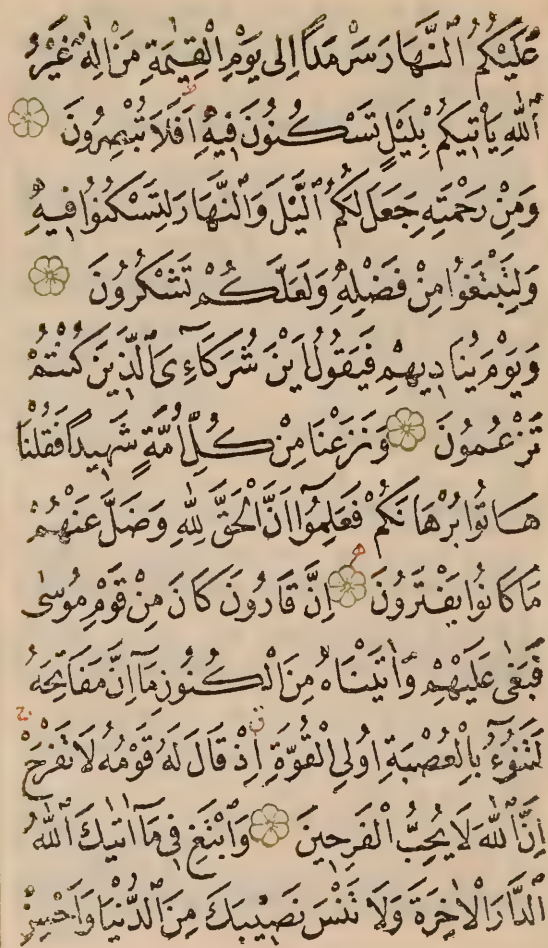 عَلَيْكُمُ النَّهَارَ سَرْمَدًا اِلٰى يَوْمِ الْقِيٰمَةِ مَنْ اِلٰهٌ غَيْرُ
اللّٰهِ يَأْتِيكُمْ بِلَيْلٍ تَسْكُنُونَ فِيهِ اَفَلَا تُبْصِرُونَ
وَمِنْ رَحْمَتِهِ جَعَلَ لَكُمُ الَّيْلَ وَالنَّهَارَ لِتَسْكُنُوا فِيهِ
وَلِتَبْتَغُوا مِنْ فَضْلِهِ وَلَعَلَّكُمْ تَشْكُرُونَ
وَيَوْمَ يُنَادِيهِمْ فَيَقُولُ اَيْنَ شُرَكَاءِىَ الَّذِينَ كُنْتُمْ
تَزْعُمُونَ وَنَزَعْنَا مِنْ كُلِّ اُمَّةٍ شَهِيدًا فَقُلْنَا
هَاتُوا بُرْهَانَكُمْ فَعَلِمُوا اَنَّ الْحَقَّ لِلّٰهِ وَضَلَّ عَنْهُمْ
مَا كَانُوا يَفْتَرُونَ اِنَّ قَارُونَ كَانَ مِنْ قَوْمِ مُوسٰى
فَبَغٰى عَلَيْهِمْ وَاٰتَيْنَاهُ مِنَ الْكُنُوزِ مَآ اِنَّ مَفَاتِحَهُ
لَتَنُوٓءُ بِالْعُصْبَةِ اُولِى الْقُوَّةِ اِذْ قَالَ لَهُ قَوْمُهُ لَا تَفْرَحْ
اِنَّ اللّٰهَ لَا يُحِبُّ الْفَرِحِينَ وَابْتَغِ فِى مَآ اٰتٰيكَ اللّٰهُ
الدَّارَ الْاٰخِرَةَ وَلَا تَنْسَ نَصِيبَكَ مِنَ الدُّنْيَا وَاَحْسِنْ